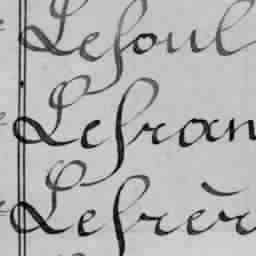 Lefoul
Lefran
Lefrèr